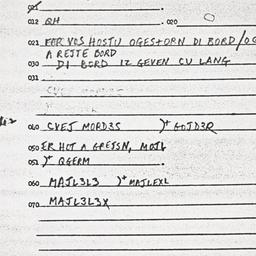 012 QH 020
021 FAR VOS HOSTU OGES+ORN DI BORD/OG
A REJTE BORD
030 DI BORD IZ GEVEN CU LANG
031
040 CVEJ MORD3S )+ GOJD3R
050 ER HOT A GREJSN, MOJL
051 )+ QGERM
060 MAJL3L3 )+ MAJLEXL
070 MAJL3L3X